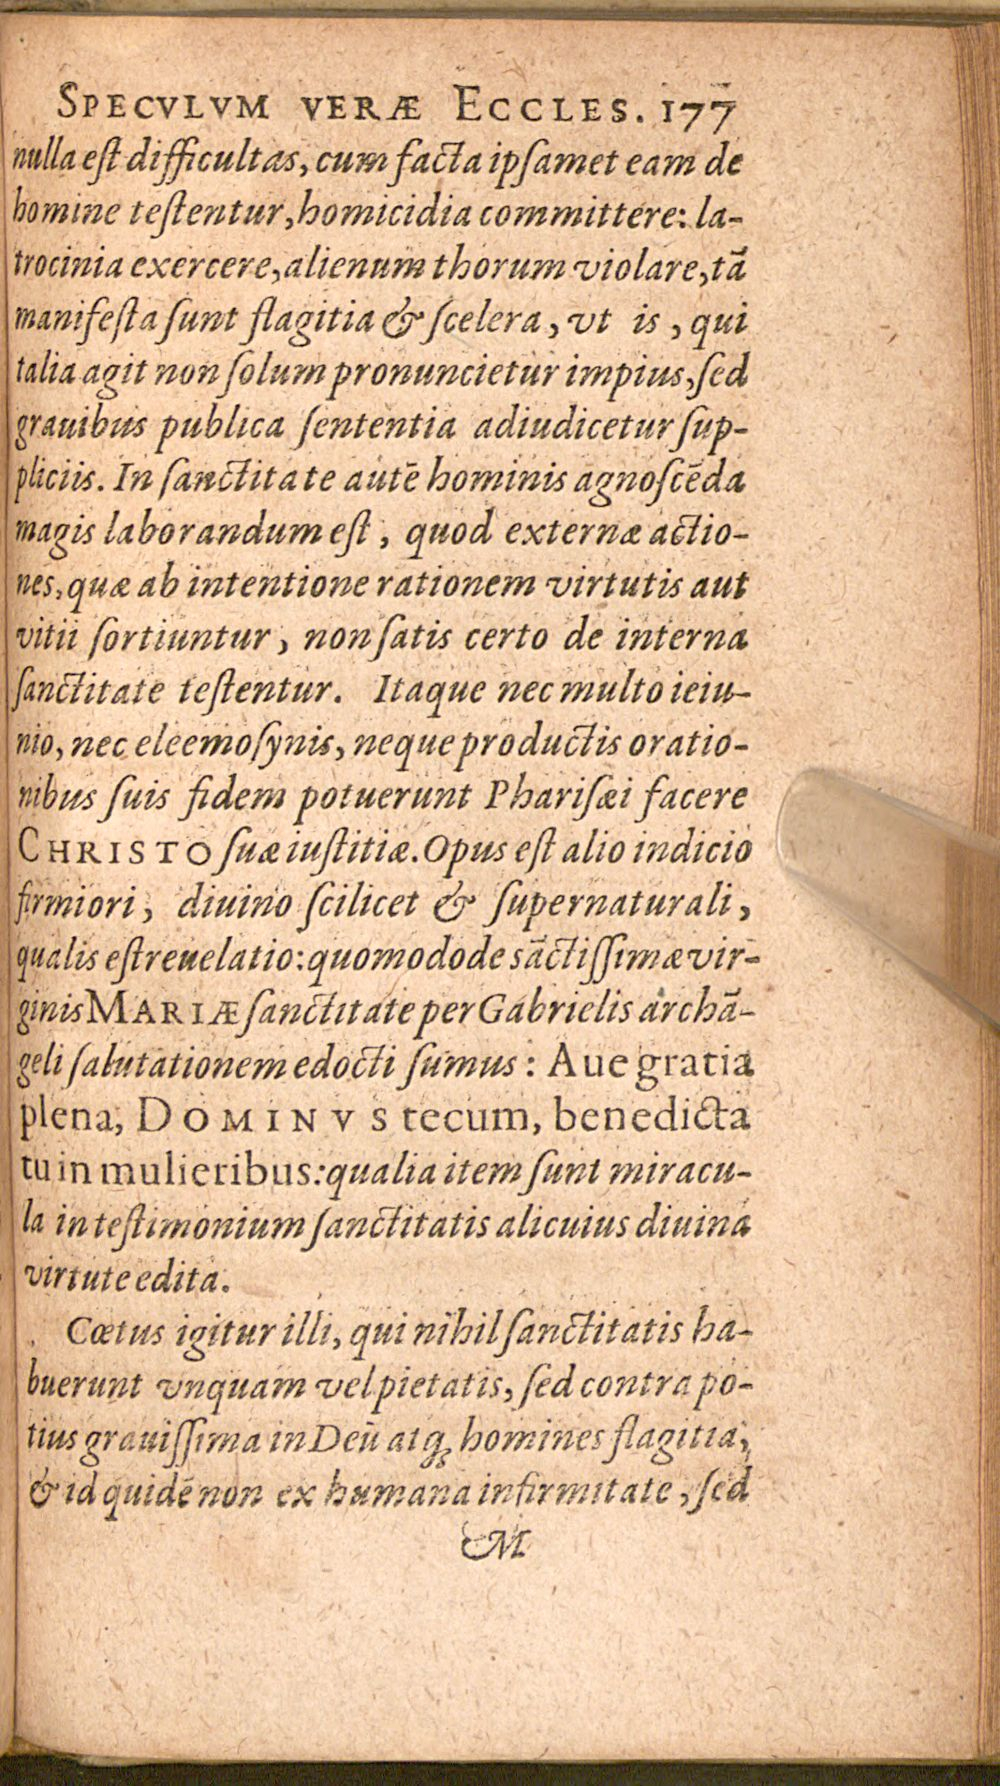 SPECVLVM VERÆ ECCLES. 177
nulla eſt difficultas, cum facta ipſamet eam de
homine teſtentur, homicidia committere: la-
trocinia exercere, alienum thorum violare, tā
manifeſta ſunt flagitia & ſcelera, vt is, qui
talia agit non ſolum pronuncietur impius, ſed
grauibus publica ſententia adiudicetur ſup-
pliciis. In ſanctitate autē hominis agnoſcēda
magis laborandum eſt, quod externæ actio-
nes, quæ ab intentione rationem virtutis aut
vitii ſortiuntur, non ſatis certo de interna
ſanctitate teſtentur. Itaque nec multo ieiu-
nio, nec eleemoſynis, neque productis oratio-
nibus ſuis fidem potuerunt Phariſæi facere
CHRISTO ſuæ iuſtitiæ. Opus eſt alio indicio
firmiori, diuino ſcilicet & ſupernaturali,
qualis eſt reuelatio: quomodo de sāctiſſimæ vir-
ginis MARIÆ ſanctitate per Gabrielis archā-
geli ſalutationem edocti ſumus: Aue gratia
plena, DOMINVS tecum, benedicta
tu in mulieribus: qualia item ſunt miracu-
la in teſtimonium ſanctitatis alicuius diuina
virtute edita.
Cœtus igitur illi, qui nihil ſanctitatis ha-
buerunt vnquam vel pietatis, ſed contra po-
tius grauiſſima in Deū atq; homines flagitia,
& id quidē non ex humana infirmitate, ſed
M